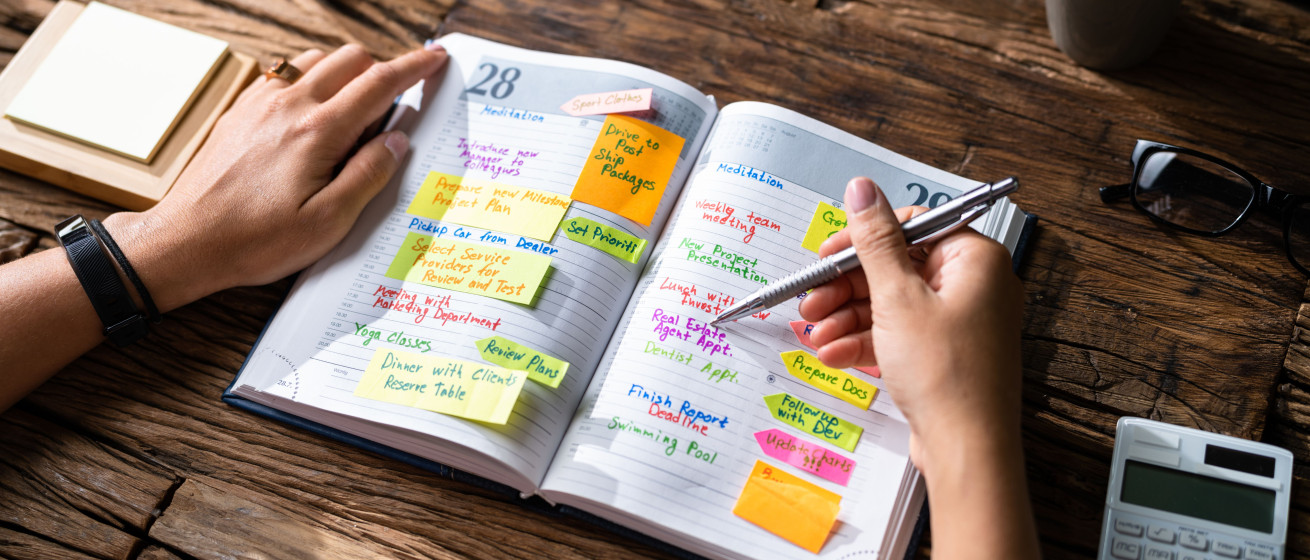 28
Sport Clothes
Meditation
Drive to
Post
Ship
Packages
Introduce new
Manager to
Colleagues
Prepare new Milestone
Project Plan
Set Priorits
Pickup Car from Dealer
Select Service
Providers for
Review and Test
Meeting with
Marketing Department
Yoga Classes
Review Plans
Dinner with Clients
Reserve Table
29
Meditation
Weekly team
meeting
Get
New Project
Presentation
Lunch with
Real Estate
Agent Appt.
Dentist Appt.
Prepare Docs
Finish Report
Deadline
Followup
with Dev
Swimming Pool
Update Charts
!!!